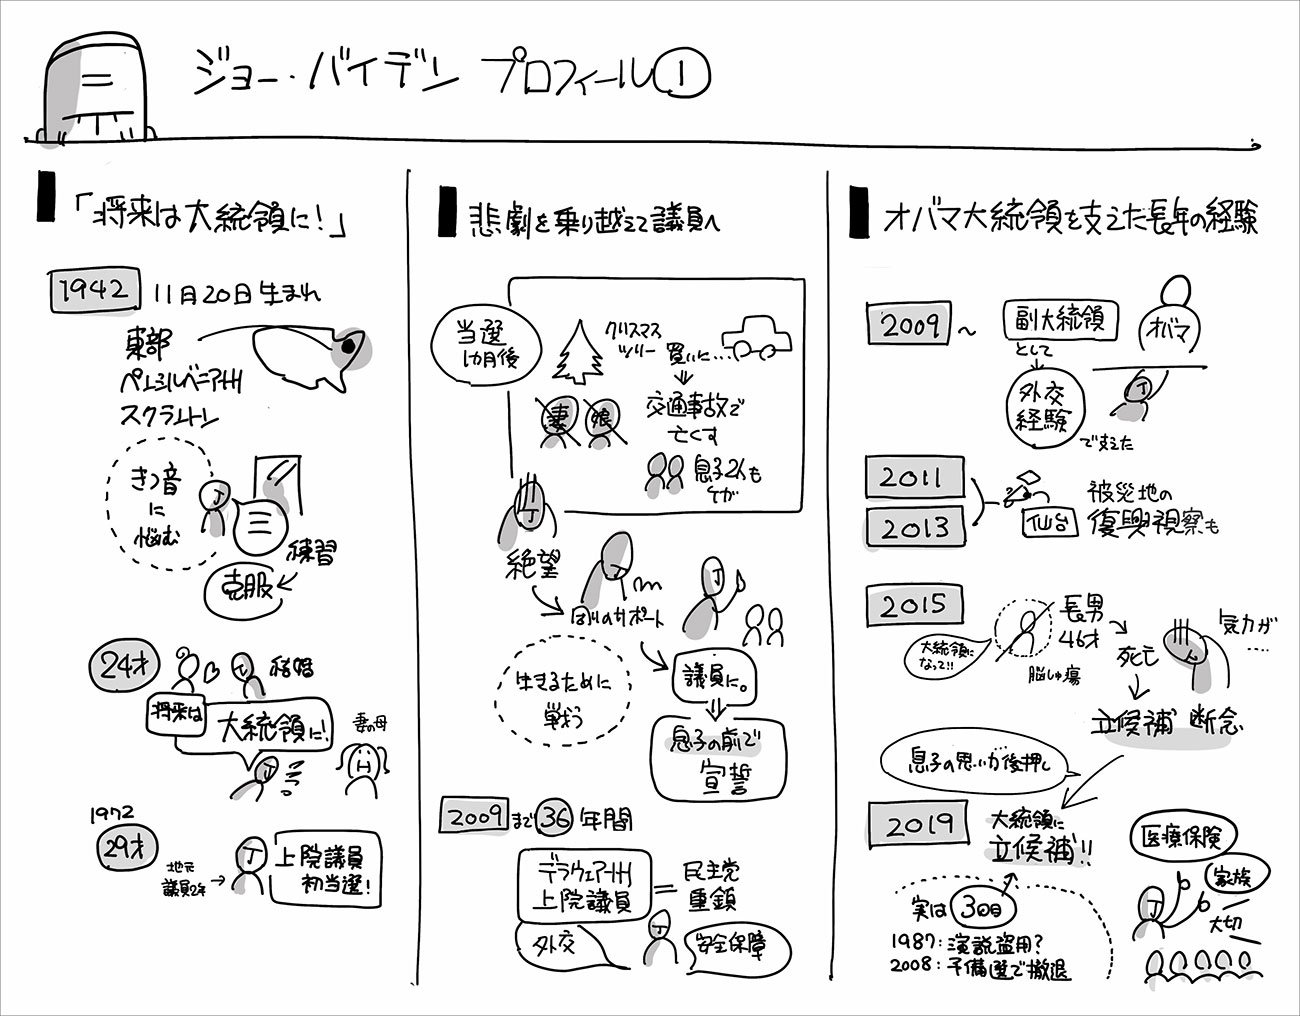 ジョー・バイデン プロフィール①
「将来は大統領に!」
1942 11月20日生まれ
東部
ペンシルベニア州
スクラントン
きつ音
に
悩む
J
練習
克服
24才
結婚
将来は
大統領に!
妻の母
1972
29才
地元
議員2年
J
上院議員
初当選!
悲劇を乗り越えて議員へ
当選
1カ月後
クリスマス
ツリー
買いに…
妻
娘
交通事故で
亡くす
息子2人も
ケガ
J
絶望
周りのサポート
J
生きるために
戦う
議員に。
息子の前で
宣誓
2009まで36年間
デラウェア州
上院議員
=
民主党
重鎮
外交
J
安全保障
オバマ大統領を支えた長年の経験
2009〜
副大統領
として
オバマ
J
外交
経験
で支えた
2011
2013
仙台
被災地の
復興視察も
2015
大統領に
なって!!
長男
46才
脳しゅ瘍
死去
気力が
…
立候補 断念
息子の思いが後押し
2019
大統領に
立候補!!
実は3回目
1987:演説盗用?
2008:予備選で撤退
医療保険
家族
大切
J